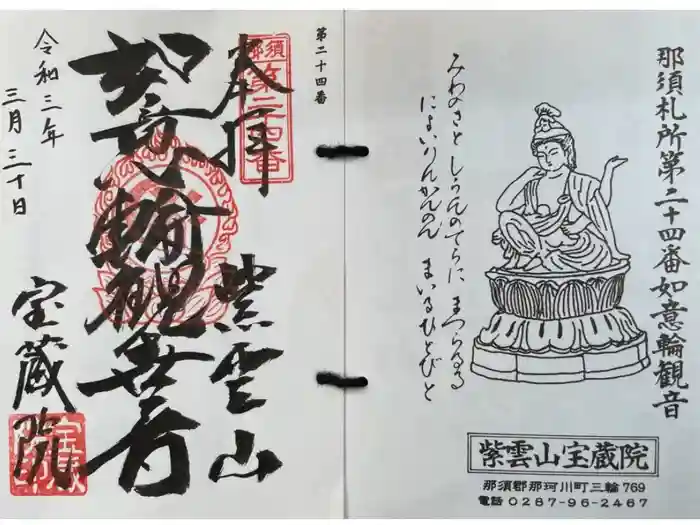 那須札所第二十四番如意輪観音
みわのさと しうんのてらに まつらるる
によいりんかんのん まいるひとびと
紫雲山宝蔵院
那須郡那珂川町三輪769
電話0287-96-2467
第二十四番
那須
第二十四番
奉拝
紫雲山
如意輪観世音
宝蔵院
令和三年
三月三十日